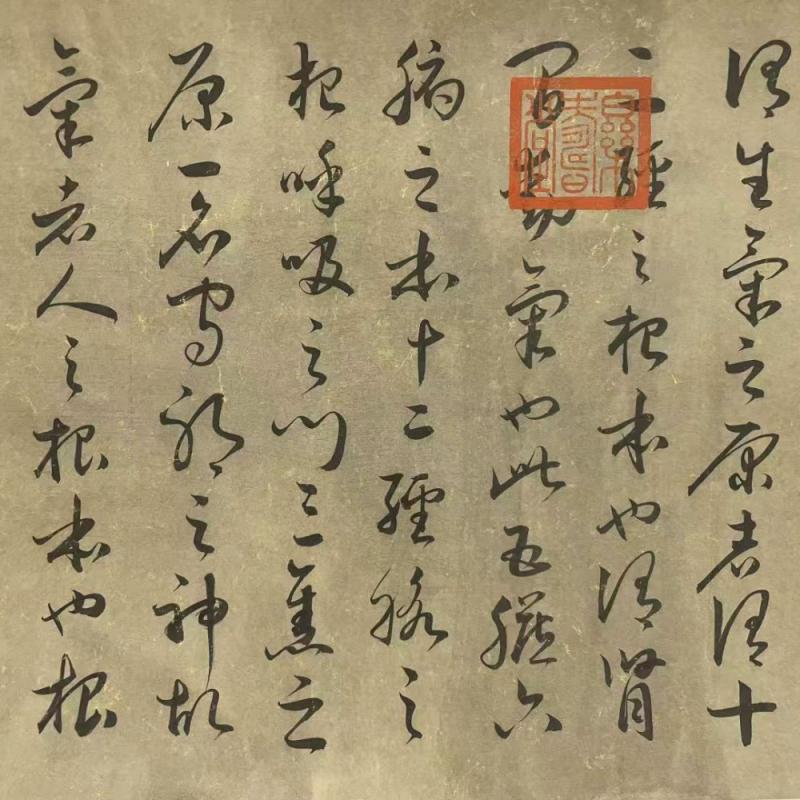 謂生氣之原者謂十
二經之根本也謂腎
間動氣也此五臟六
腑之本十二經脈之
根呼吸之門三焦之
原一名守邪之神故
氣者人之根本也根